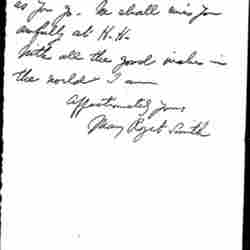 as you go. We shall miss you
awfully at H.H.
With all the good wishes in
the world I am
Affectionately yours
Mary Rozet Smith